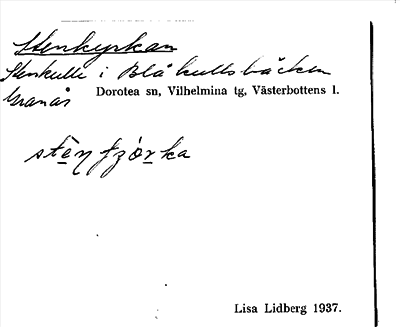 Stenkyrkan
Stenkulle i Blåkullsbäcken
Granås Dorotea sn, Vilhelmina tg, Västerbottens l.
stè̱ŋ fzȯṟka
Lisa Lidberg 1937.